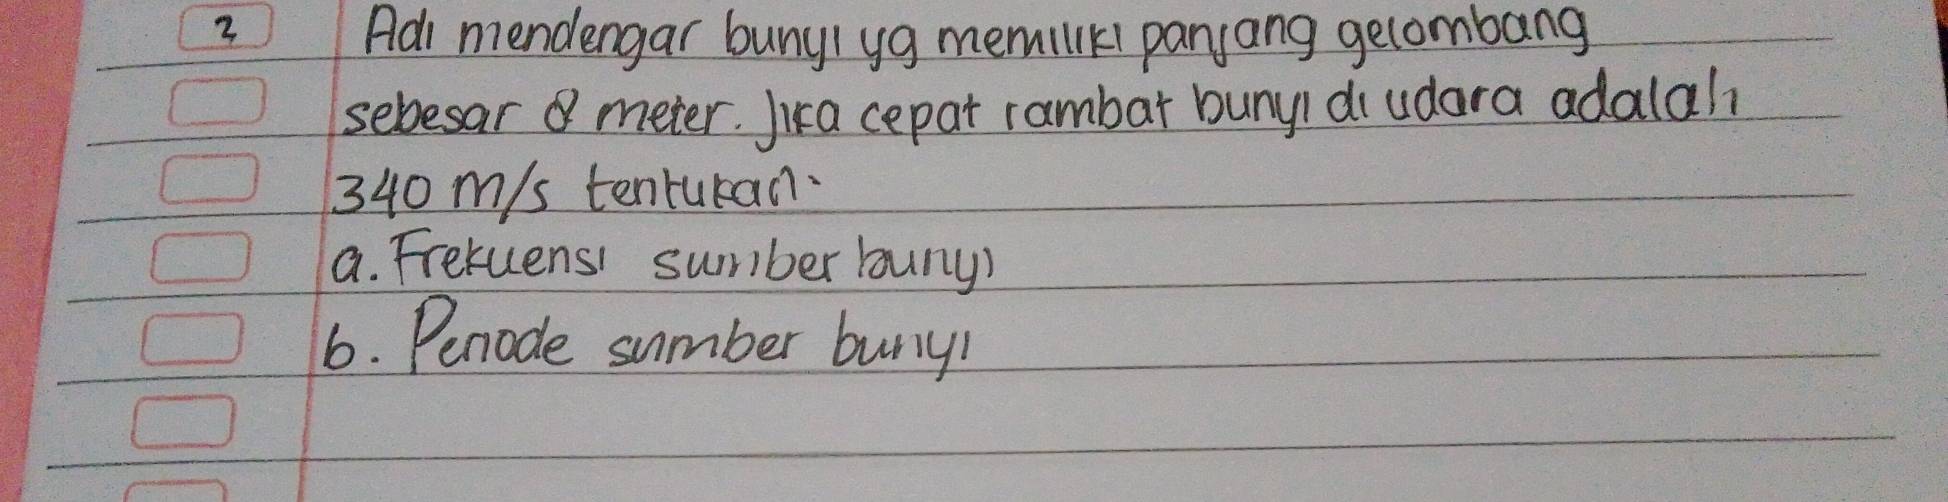 3 Adi mendengar bunyi yg memiliki panjang gelombang
sebesar 8 meter. Jika cepat rambat bunyi di udara adalah
340 m/s tentukan.
a. Frekuensi sumber bunyi
b. Periode sumber bunyi